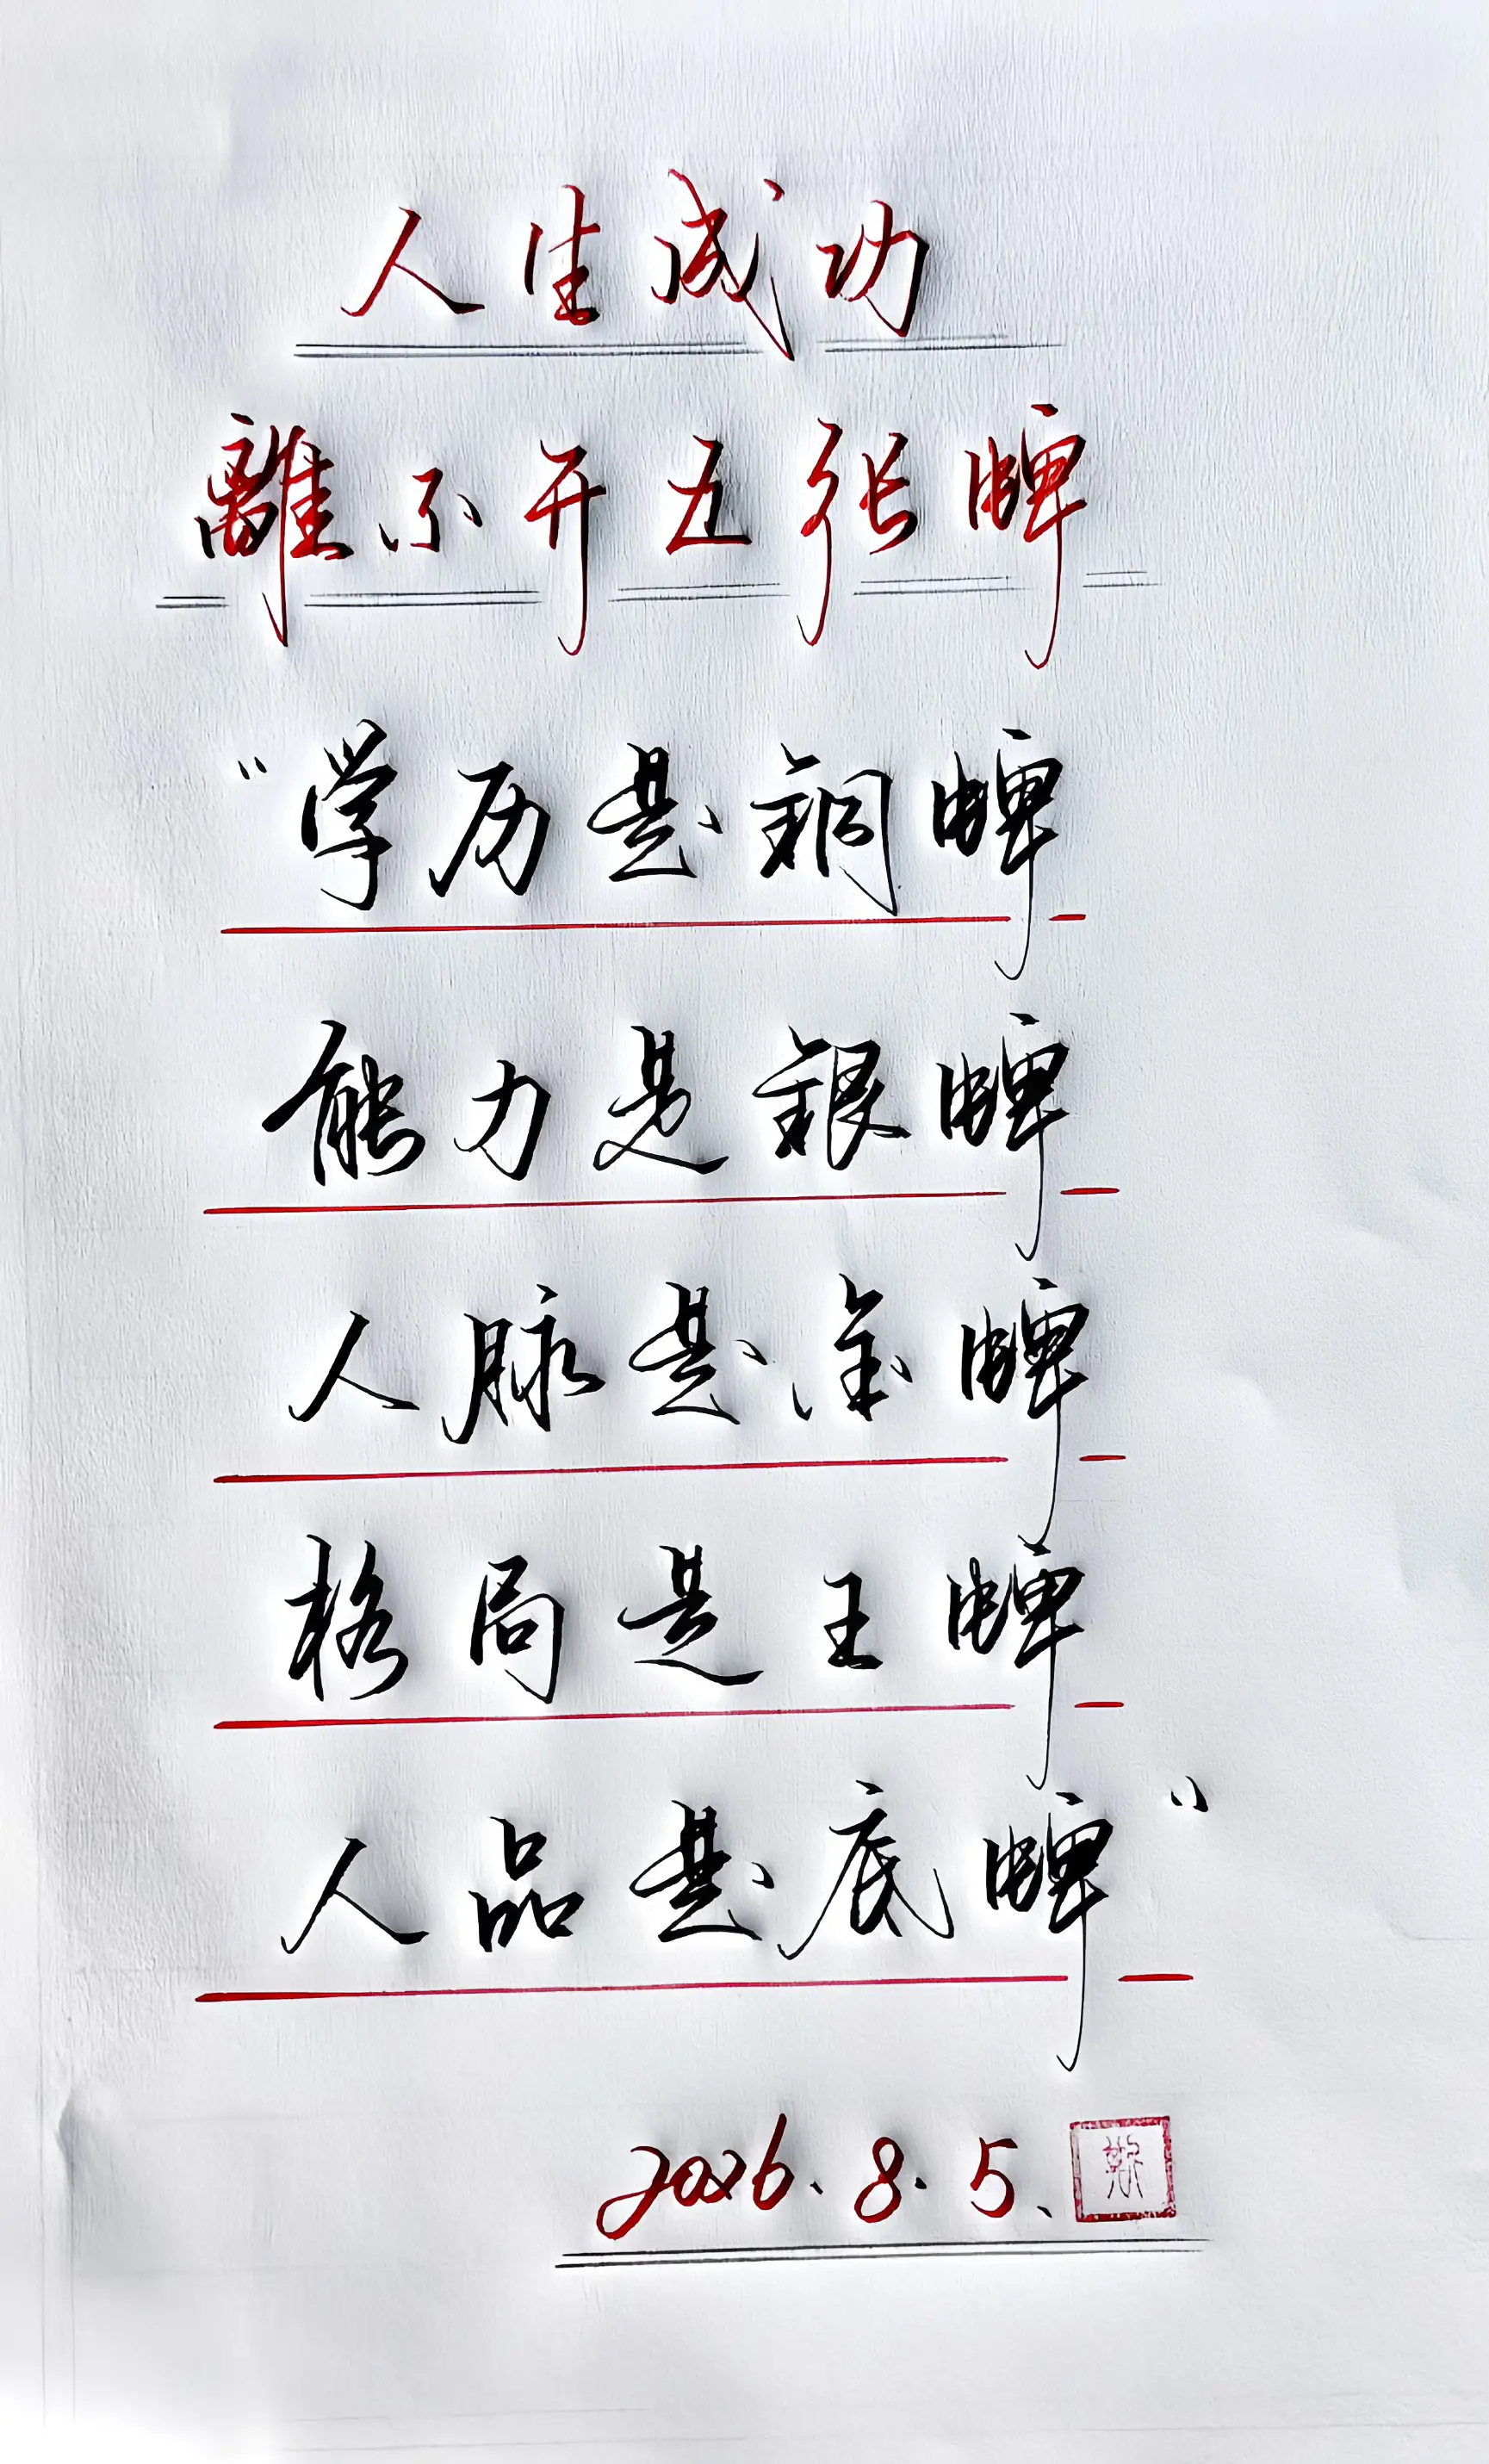 人生成功
離不开五张牌
“学历是铜牌
能力是银牌
人脉是金牌
格局是王牌
人品是底牌”
2026.8.5.